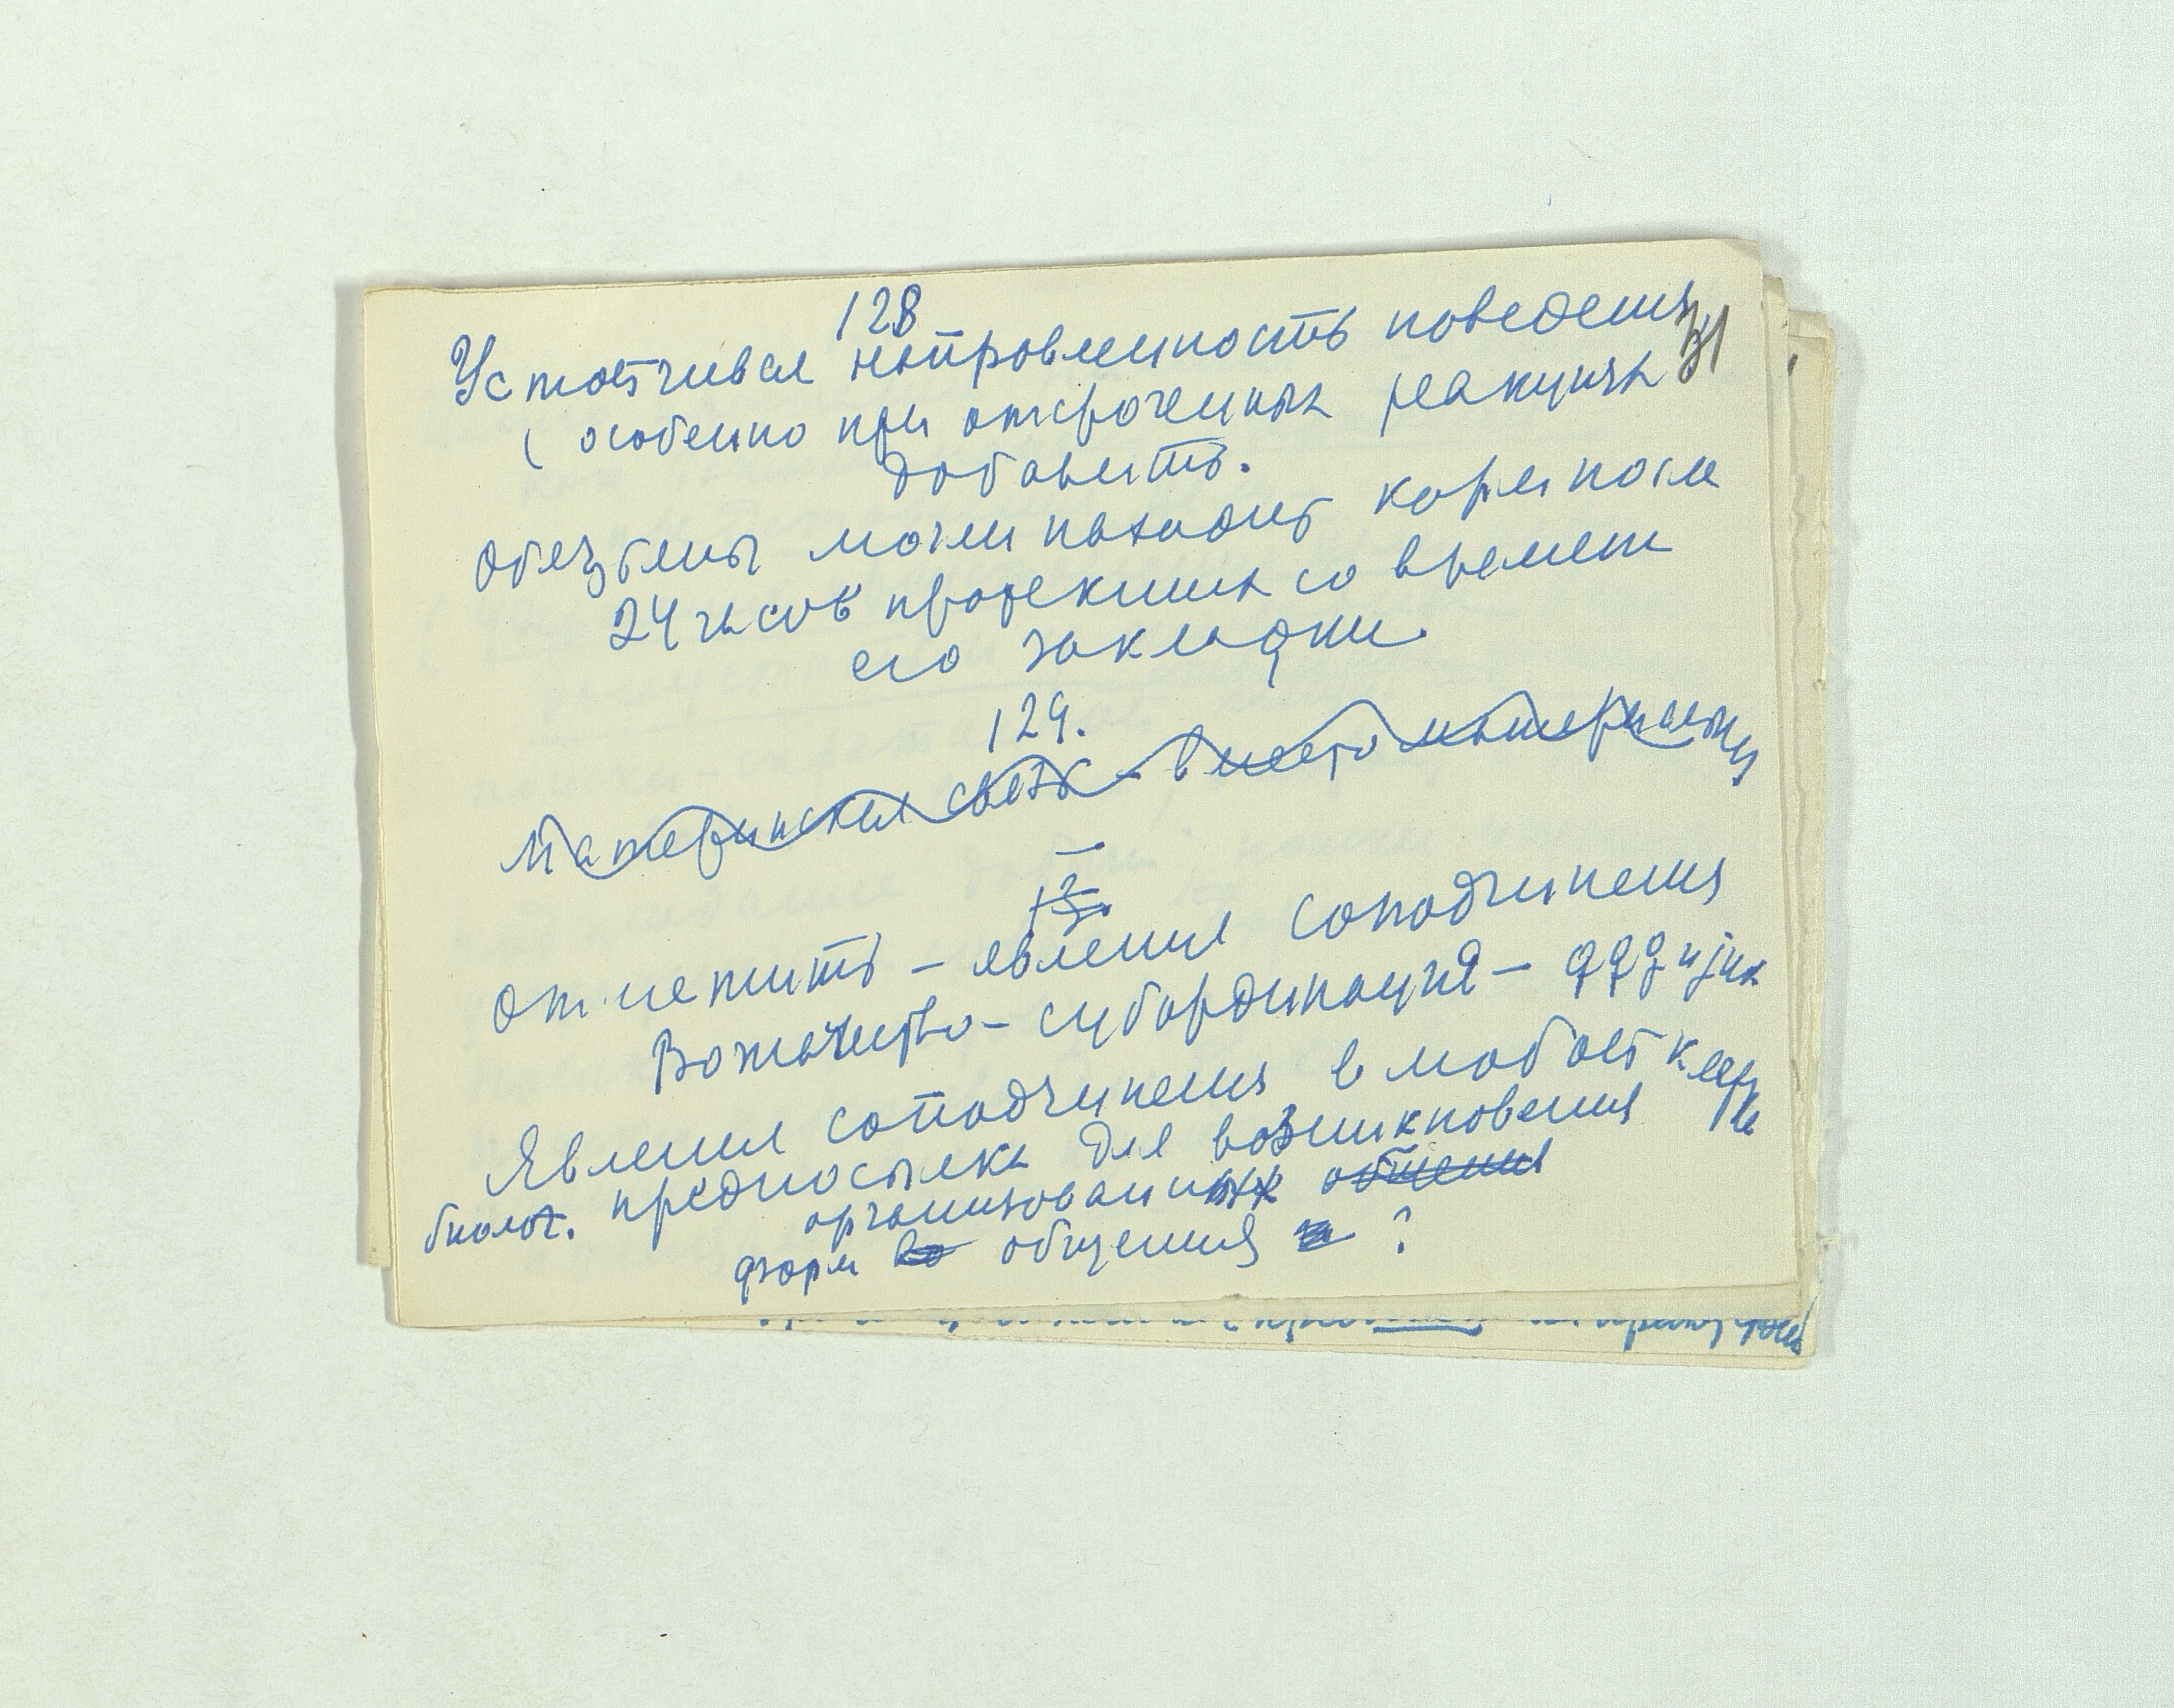 128
Устойчивая направленность поведения
31
( особенно при отсроченных реакциях
добавить.
Обезьяны могли находить корм после
24 часов протекших со времени
его закладки.
129.
Материнская связь – вместо материальных
Отметить – явления соподчинения
Вожачество – субординация –
Явления соподчинения в любой
биолог. предпосылка для возникновения
организованных общения
форм общения ?